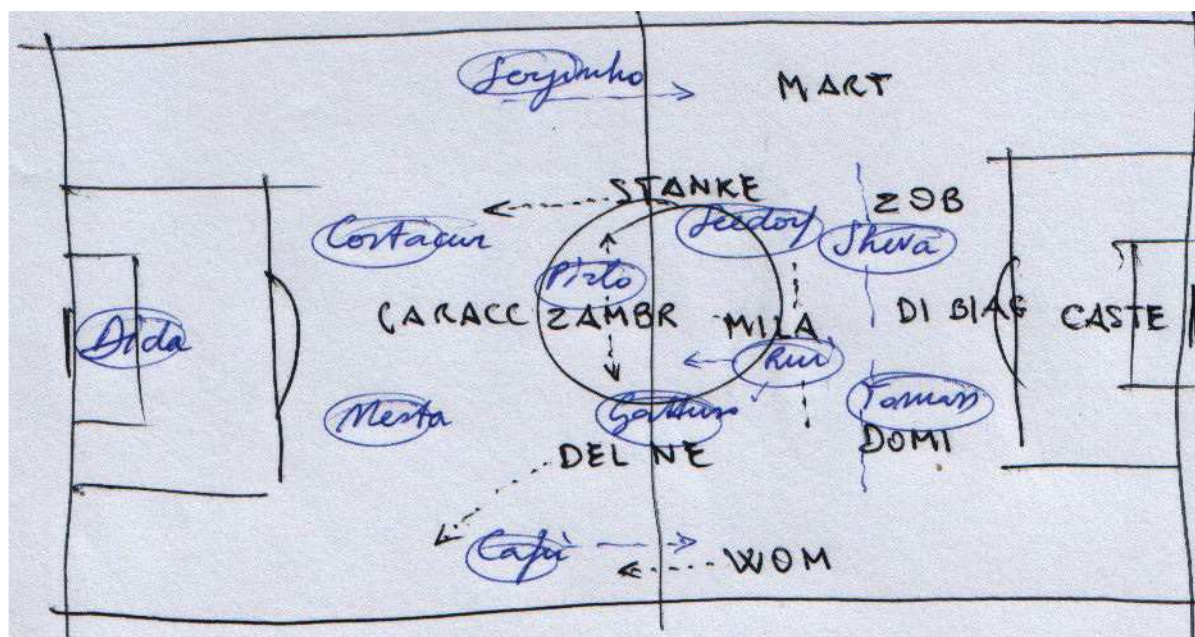 Serginho
MART
STANKE
ZOB
Costacur
Seedorf
Sheva
Pirlo
CARACC
ZAMBR
MILA
DI BIAG
CASTE
Dida
Rui
Nesta
Gattuso
Tomass
DEL NE
DOMI
Cafù
WOM